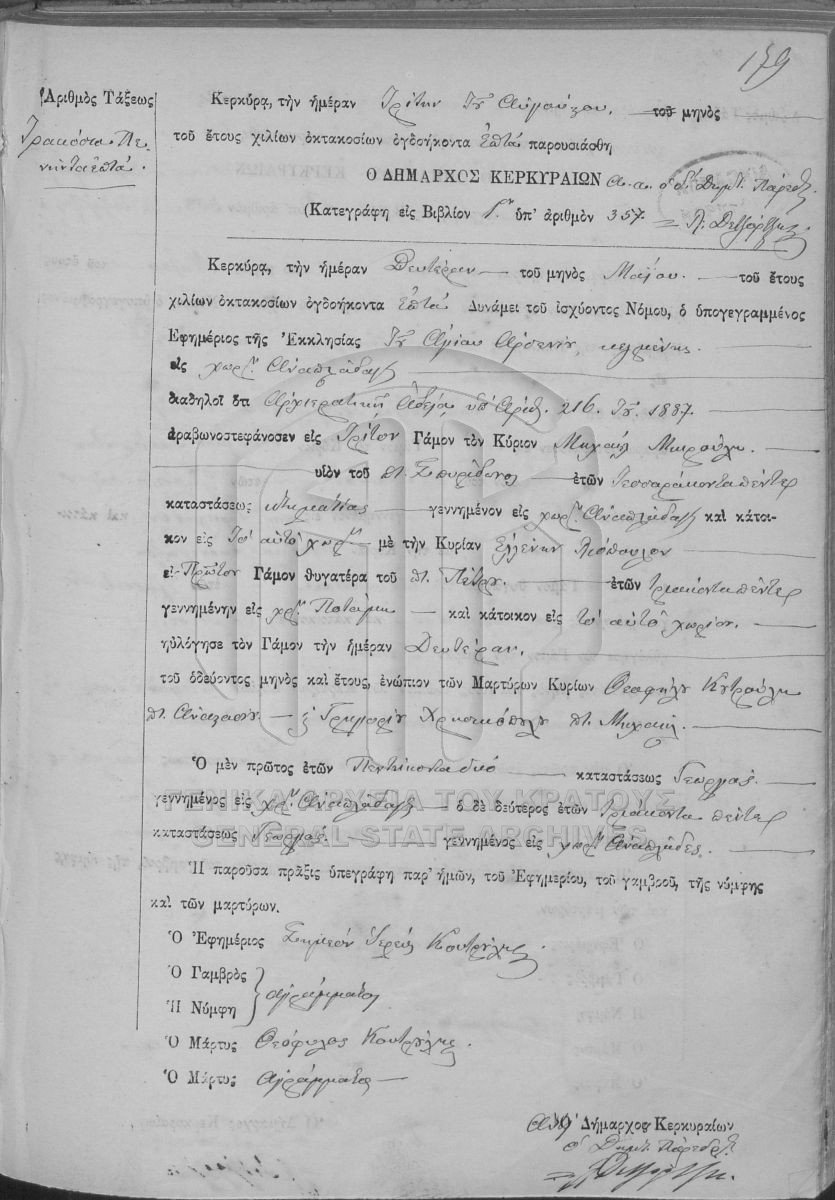 179
Ἀριθμὸς Τάξεως
Τριακόσια Πε
νῆντα ἑπτά.
Κερκύρᾳ, τὴν ἡμέραν Τρίτην Τοῦ Αὐγούστου. τοῦ μηνὸς
τοῦ ἔτους χιλίων ὀκτακοσίων ὀγδοήκοντα ἑπτὰ παρουσιάσθη
Ο ΔΗΜΑΡΧΟΣ ΚΕΡΚΥΡΑΙΩΝ ὁ Δημτ. Πάρεδ.
(Κατεγράφη εἰς Βιβλίον Γ.ον ὑπ' ἀριθμὸν 357.
Κερκύρᾳ, τὴν ἡμέραν Δευτέραν τοῦ μηνὸς Μαΐου. τοῦ ἔτους
χιλίων ὀκτακοσίων ὀγδοήκοντα ἑπτὰ Δυνάμει τοῦ ἰσχύοντος Νόμου, ὁ ὑπογεγραμμένος
Ἐφημέριος τῆς Ἐκκλησίας Τοῦ Ἁγίου Ἀρσενίου, κειμένης
εἰς χωρ. Ἀναπλάδαις
διαδηλοῖ ὅτι Ἀρχιερατικῇ Ἀδείᾳ ὑπ' Ἀριθ. 216. Τοῦ. 1887.
ἀραβωνοστεφάνοσεν εἰς Τρίτον Γάμον τὸν Κύριον Μιχαὴλ
υἱὸν τοῦ π. Σπυρίδωνος ἐτῶν Τεσσαράκοντα πέντε
καταστάσεως κτηματίας γεννημένον εἰς χωρ. Ἀναπλάδαις καὶ κάτοι-
κον εἰς Τὸ αὐτὸ χωρ. μὲ τὴν Κυρίαν Ἑλλένην
εἰς Πρῶτον Γάμον θυγατέρα τοῦ π. Πέτρου. ἐτῶν τριάκοντα πέντε
γεννημένην εἰς χωρ. Ποταμοῦ καὶ κάτοικον εἰς τὸ αὐτὸ χωρίον.
ηὐλόγησε τὸν Γάμον τὴν ἡμέραν Δευτέραν.
τοῦ ὁδεύοντος μηνὸς καὶ ἔτους, ἐνώπιον τῶν Μαρτύρων Κυρίων Θεοφήλου Κυτρούλη
π. Ἀναστασίου. Γρηγορίου Χρυσικόπουλου π. Μιχαήλ.
Ὁ μὲν πρῶτος ἐτῶν Πεντήκοντα δύο καταστάσεως Γεωργός.
γεννημένος εἰς χωρ. Ἀναπλάδαις ὁ δὲ δεύτερος ἐτῶν τριάκοντα πέντε
καταστάσεως Γεωργός. γεννημένος εἰς χωρ. Ἀναπλάδες.
Ἡ παροῦσα πρᾶξις ὑπεγράφη παρ' ἡμῶν, τοῦ Ἐφημερίου, τοῦ γαμβροῦ, τῆς νύμφης
καὶ τῶν μαρτύρων.
Ὁ Ἐφημέριος Συμεὸν Ἱερεὺς Κουτρούλης
Ὁ Γαμβρὸς
ἀγράμματοι
Ἡ Νύμφη
Ὁ Μάρτυς Θεόφυλος Κουτρούλης.
Ὁ Μάρτυς ἀγράμματος
Ὁ Δήμαρχος Κερκυραίων
ὁ Δημτ. Πάρεδρ.
ΓΕΝΙΚΑ ΑΡΧΕΙΑ ΤΟΥ ΚΡΑΤΟΥΣ
GENERAL STATE ARCHIVES